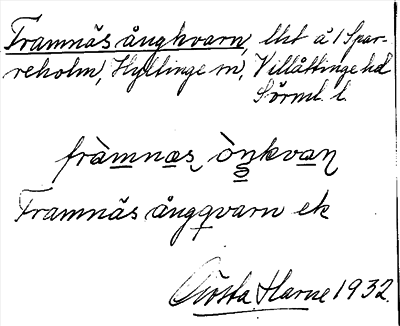 Framnäs ångkvarn, lht å 1 Spar-
reholm, Hyltinge sn, Villåttinge hd
Sörml. l.
fràmnas, ònkvaṇ
Framnäs ångqvarn ek
Gösta Harne 1932.